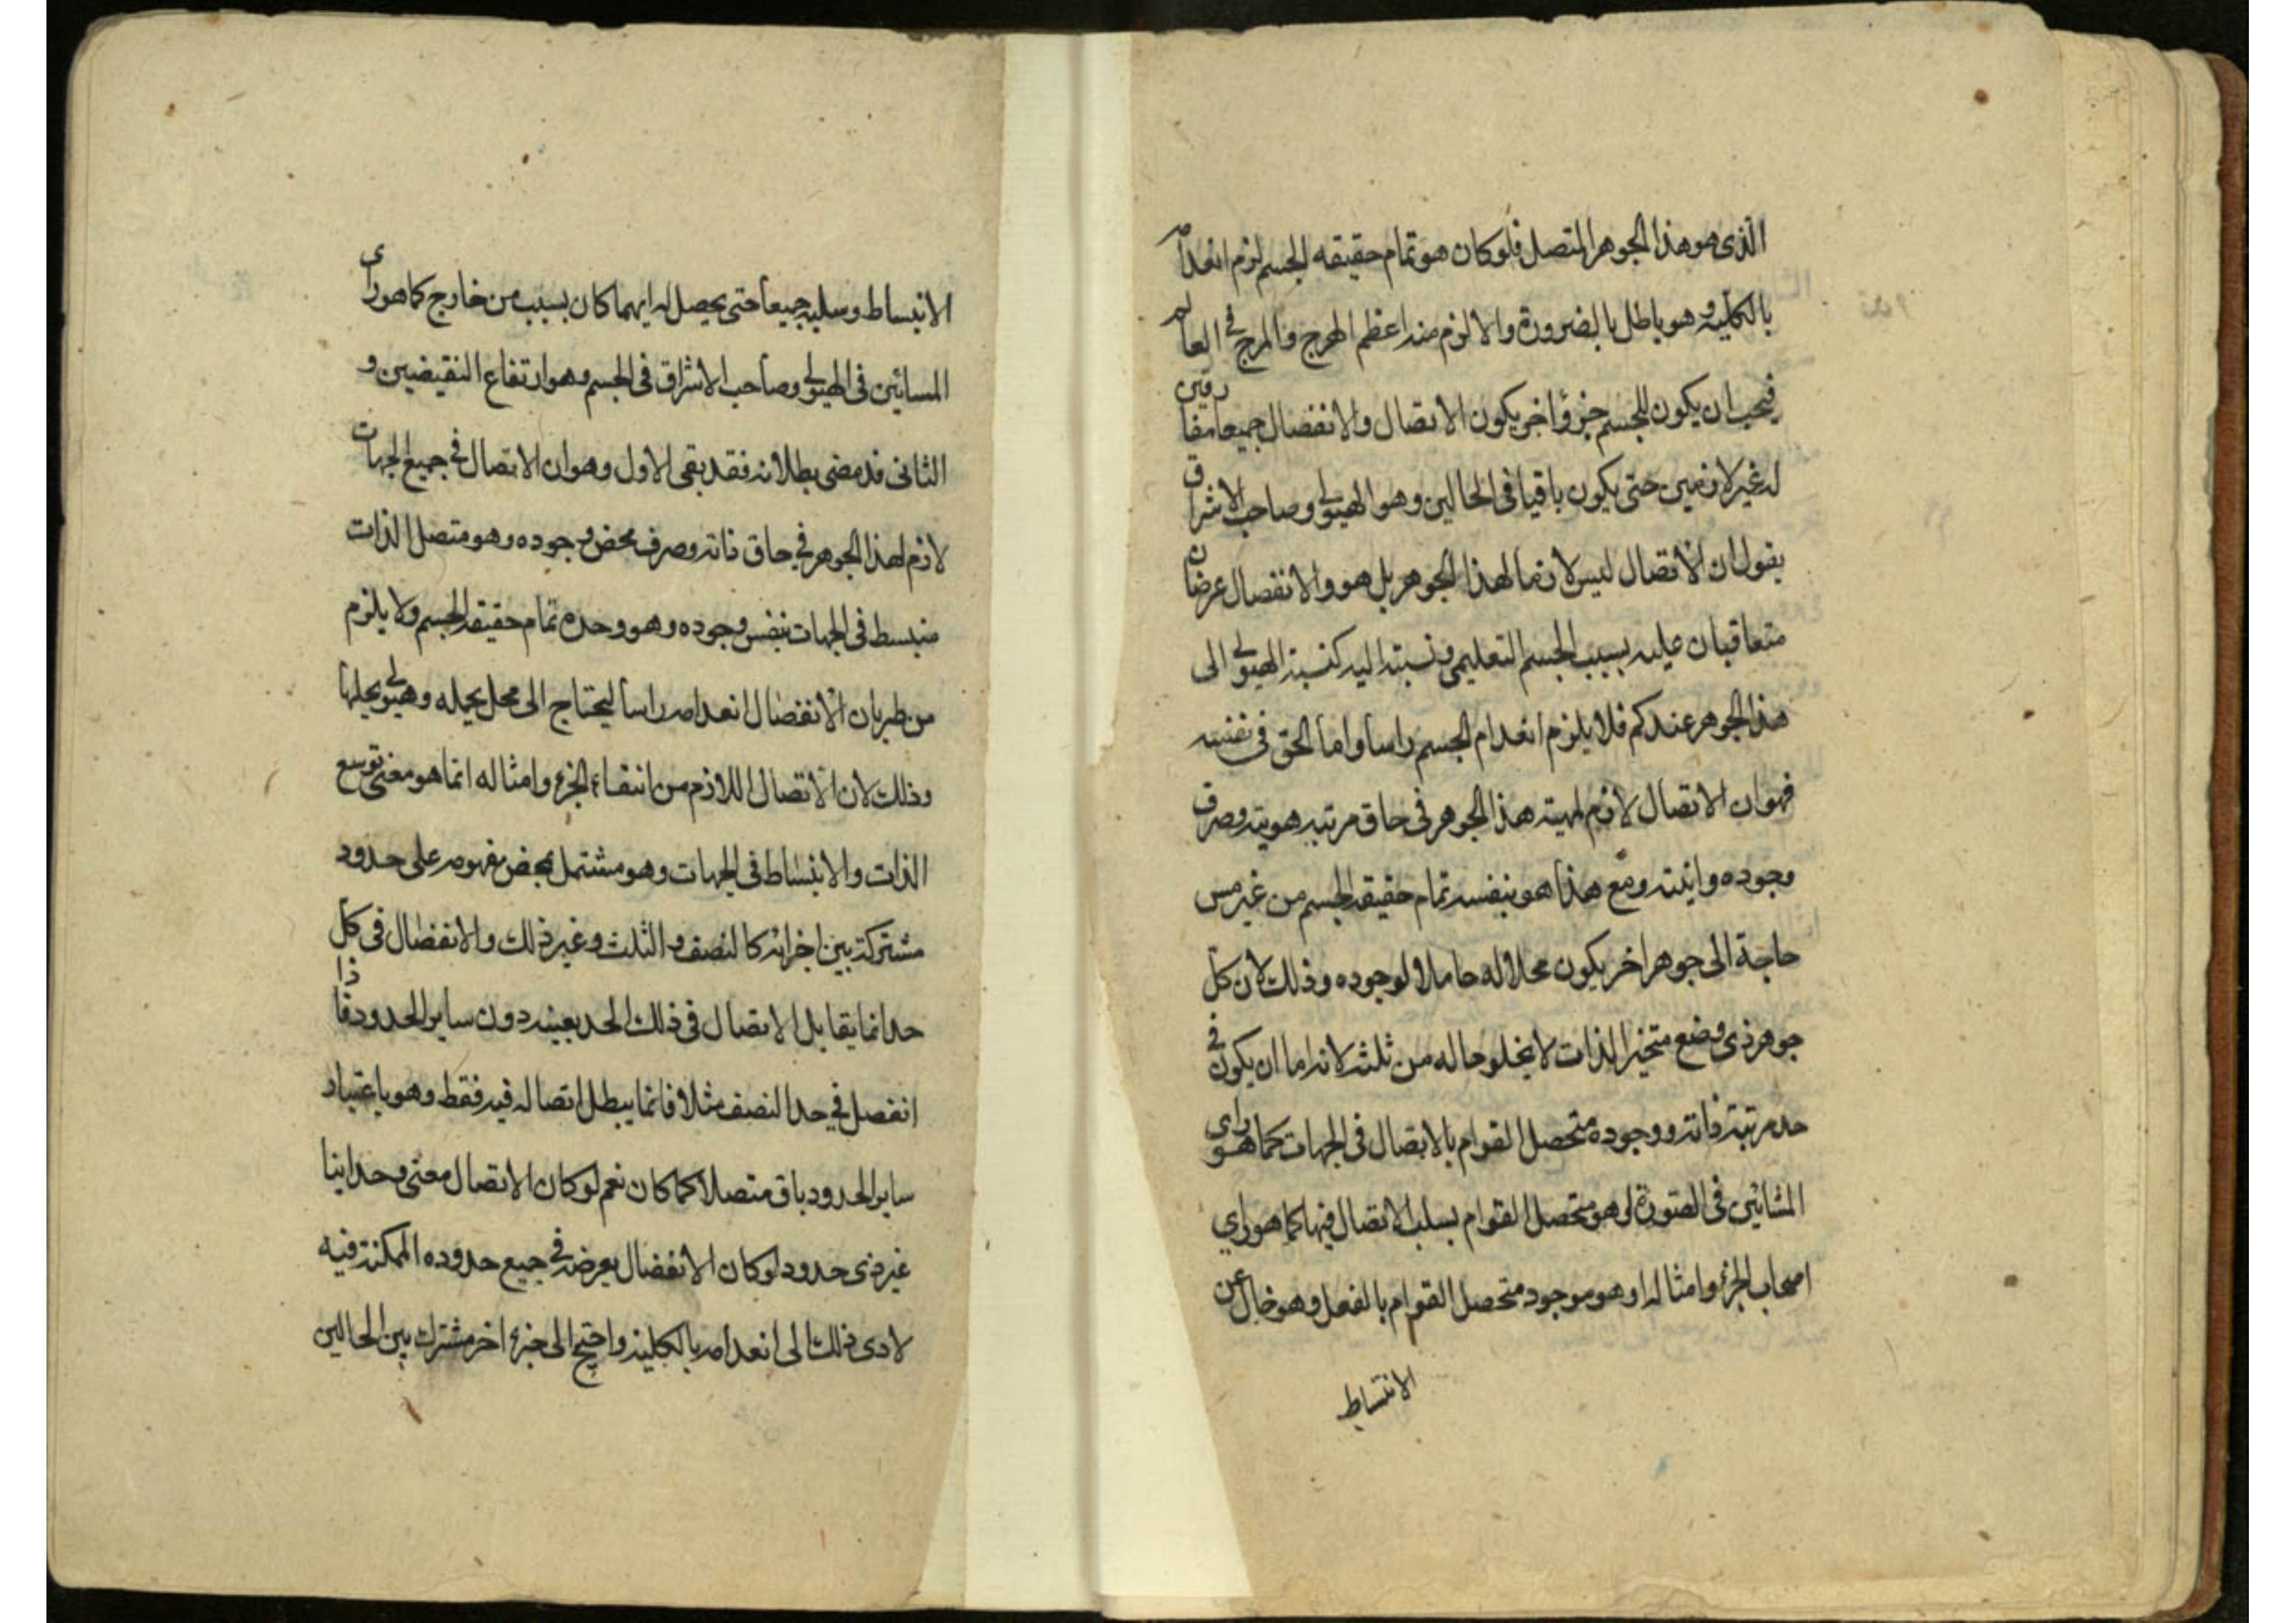 الذى هو هذا الجوهر المتصل فلو كان هو تمام حقيقه الجسم لزم انعدامه
بالكلية وهو باطل بالضرورة والا لزم منه اعظم الهرج والمرج فى العالم
فيجب ان يكون للجسم جزؤ اخر يكون الاتصال والانفصال جميعا مفارقين
له غير لازمين حتى يكون باقيا فى الحالين وهو الهيولى وصاحب الاشراق
يقول ان الاتصال ليس لازما لهذا الجوهر بل هو والانفصال عرضان
متعاقبان عليه بسبب الجسم التعليمى ونسبته اليه كنسبة الهيولى الى
هذا الجوهر عندكم فلا يلزم انعدام الجسم راسا واما الحق فى نفسه
فهو ان الاتصال لازم لمهية هذا الجوهر فى حاق مرتبه هويته وصرف
وجوده وانيته ومع هذا هو بنفسه تمام حقيقة الجسم من غير مس
حاجة الى جوهر اخر يكون محلا له حاملا لوجوده وذلك لان كل
جوهر ذى وضع متحيز الذات لا يخلو حاله من ثلثه لانه اما ان يكون فى
حد مرتبة ذاته ووجوده متحصل القوام بالاتصال فى الجهات كما هو راى
المشائين فى الصورة او هو متحصل القوام بسلب الاتصال فيها كما هو راي
اصحاب الجزء وامثاله او هو موجود متحصل القوام بالفعل وهو خال عن
الانبساط
الانبساط وسلبه جميعا حتى يحصل له ايهما كان بسبب من خارج كما هو راى
المسائين فى الهيولى وصاحب الاشراق فى الجسم وهو ارتفاع النقيضين و
الثانى قد مضى بطلانه فقد بقى الاول وهو ان الاتصال فى جميع الجهات
لازم لهذا الجوهر فى حاق ذاته وصرف محض وجوده وهو متصل الذات
منبسط فى الجهات بنفس وجوده وهو وحده تمام حقيقة الجسم ولا يلزم
من طريان الانفصال انعدامه راسا ليحتاج الى محل يحيله وهيولى يحلها
وذلك لان الاتصال اللازم من انتفاء الجزء وامثاله انما هو معنى توسع
الذات والانبساط فى الجهات وهو مشتمل بمحض مفهومه على حدود
مشتركة بين اجزائه كالنصف والثلث وغير ذلك والانفصال فى كل
حد انما يقابل الاتصال فى ذلك الحد بعينه دون ساير الحدود فاذا
انفصل فى حد النصف مثلا فانما يبطل اتصاله فيه فقط وهو باعتبار
ساير الحدود باق متصلا كما كان نعم لو كان الاتصال معنى وحدانيا
غير ذى حدود او كان الانفصال يعرضه فى جميع حدوده الممكنة فيه
لادى ذلك الى انعدامه بالكلية واحتيج الى جزء اخر مشترك بين الحالين